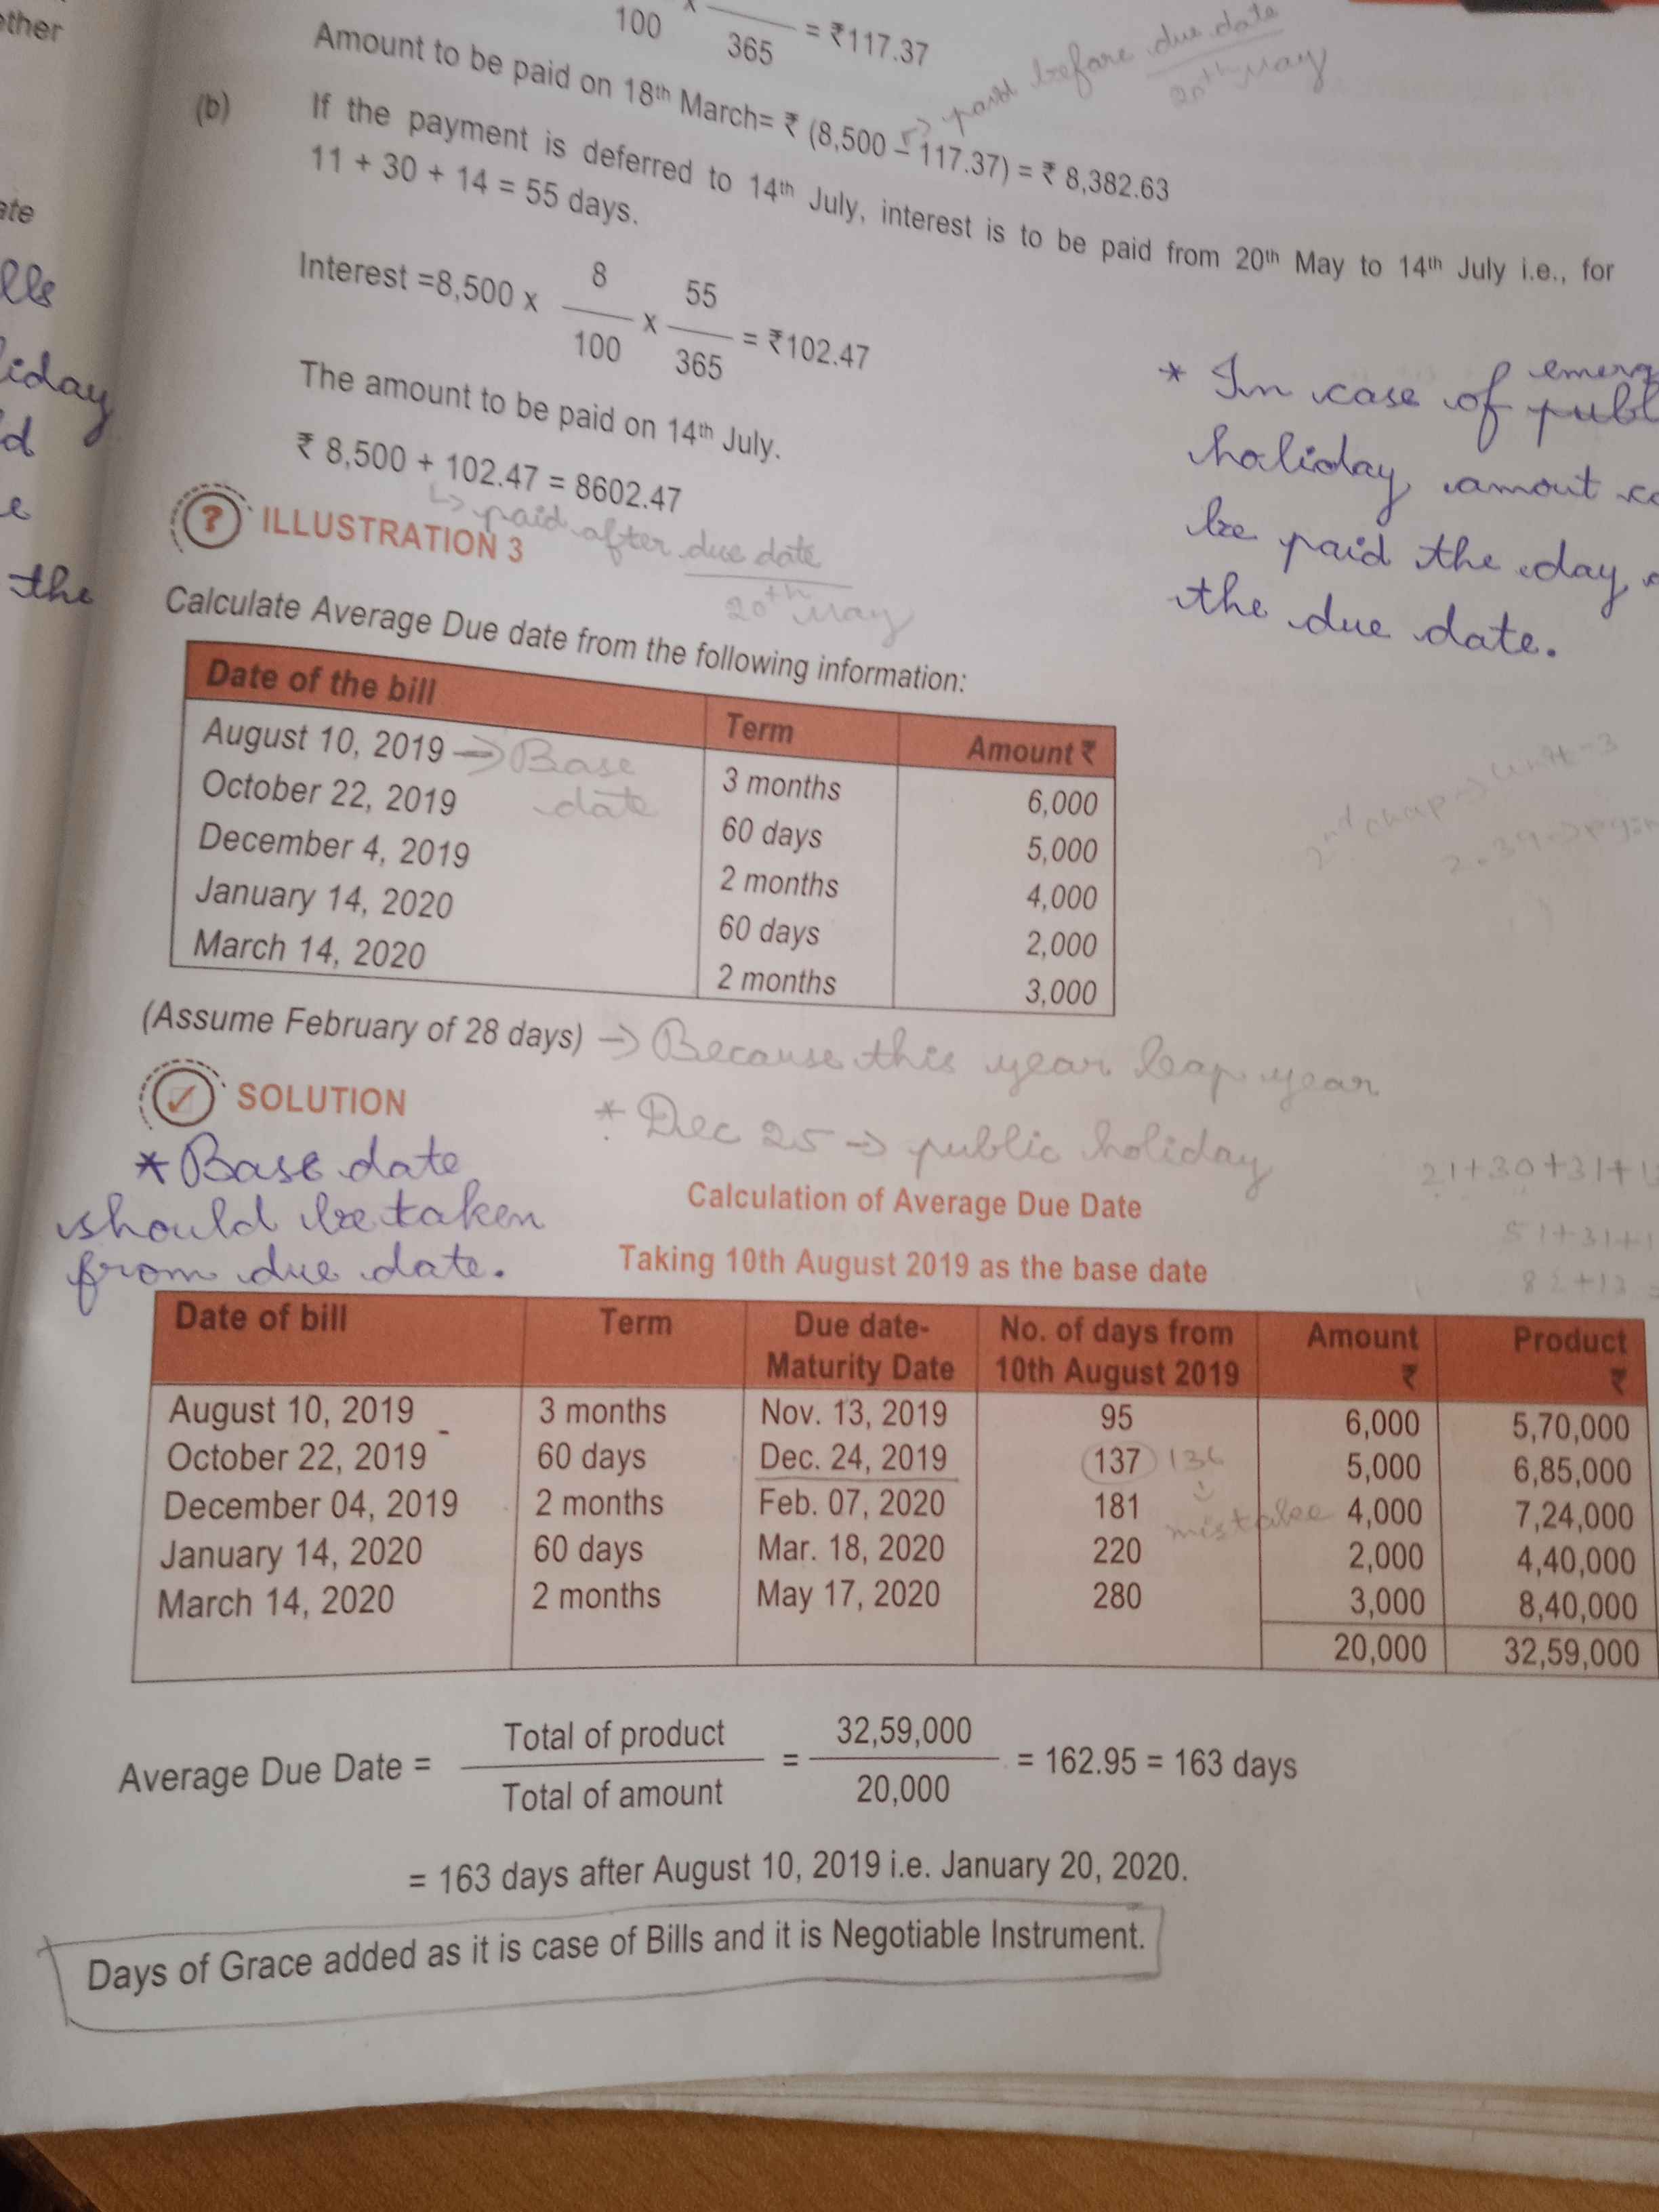 ther
ate
lls
liday
d
e
the
100 x 365 = ₹117.37
Amount to be paid on 18th March= ₹ (8,500 – 117.37) = ₹ 8,382.63
→ paid before due date
20th May
(b) If the payment is deferred to 14th July, interest is to be paid from 20th May to 14th July i.e., for
11 + 30 + 14 = 55 days.
Interest =8,500 x 8/100 x 55/365 = ₹102.47
The amount to be paid on 14th July.
₹ 8,500 + 102.47 = 8602.47
↳ paid after due date
20th May
* In case of emerg
publ
holiday, amout
be paid the day
the due date.
? ILLUSTRATION 3
Calculate Average Due date from the following information:
Date of the bill Term Amount ₹
August 10, 2019 → Base date 3 months 6,000
October 22, 2019 60 days 5,000
December 4, 2019 2 months 4,000
January 14, 2020 60 days 2,000
March 14, 2020 2 months 3,000
2nd chap → unit-3
2.39 →
(Assume February of 28 days) → Because this year leap year
SOLUTION
* Dec 25 → public holiday
* Base date
should be taken
from due date.
21+30+31+1
51+31+1
82+13 =
Calculation of Average Due Date
Taking 10th August 2019 as the base date
Date of bill Term Due date- Maturity Date No. of days from 10th August 2019 Amount ₹ Product ₹
August 10, 2019 3 months Nov. 13, 2019 95 6,000 5,70,000
October 22, 2019 60 days Dec. 24, 2019 137 136 5,000 6,85,000
December 04, 2019 2 months Feb. 07, 2020 181 mistake 4,000 7,24,000
January 14, 2020 60 days Mar. 18, 2020 220 2,000 4,40,000
March 14, 2020 2 months May 17, 2020 280 3,000 8,40,000
20,000 32,59,000
Average Due Date = Total of product/Total of amount = 32,59,000/20,000 = 162.95 = 163 days
= 163 days after August 10, 2019 i.e. January 20, 2020.
Days of Grace added as it is case of Bills and it is Negotiable Instrument.